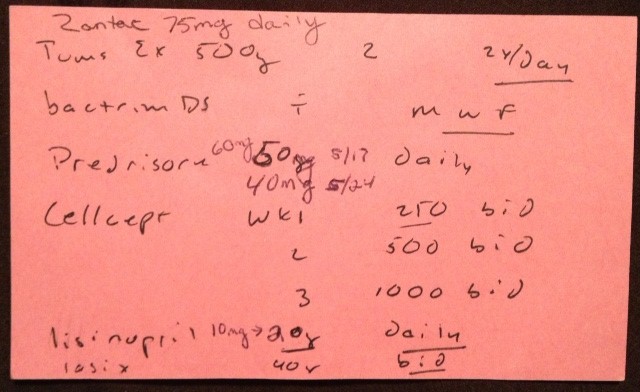 Zantac 75mg daily
Tums Ex 500g 2 2x/Day
bactrim DS i M W F
Prednisone 60mg 50mg 5/17 daily
40mg 5/24
Cellcept WK1 250 bid
2 500 bid
3 1000 bid
lisinopril 10mg → 20g daily
lasix 40 bid